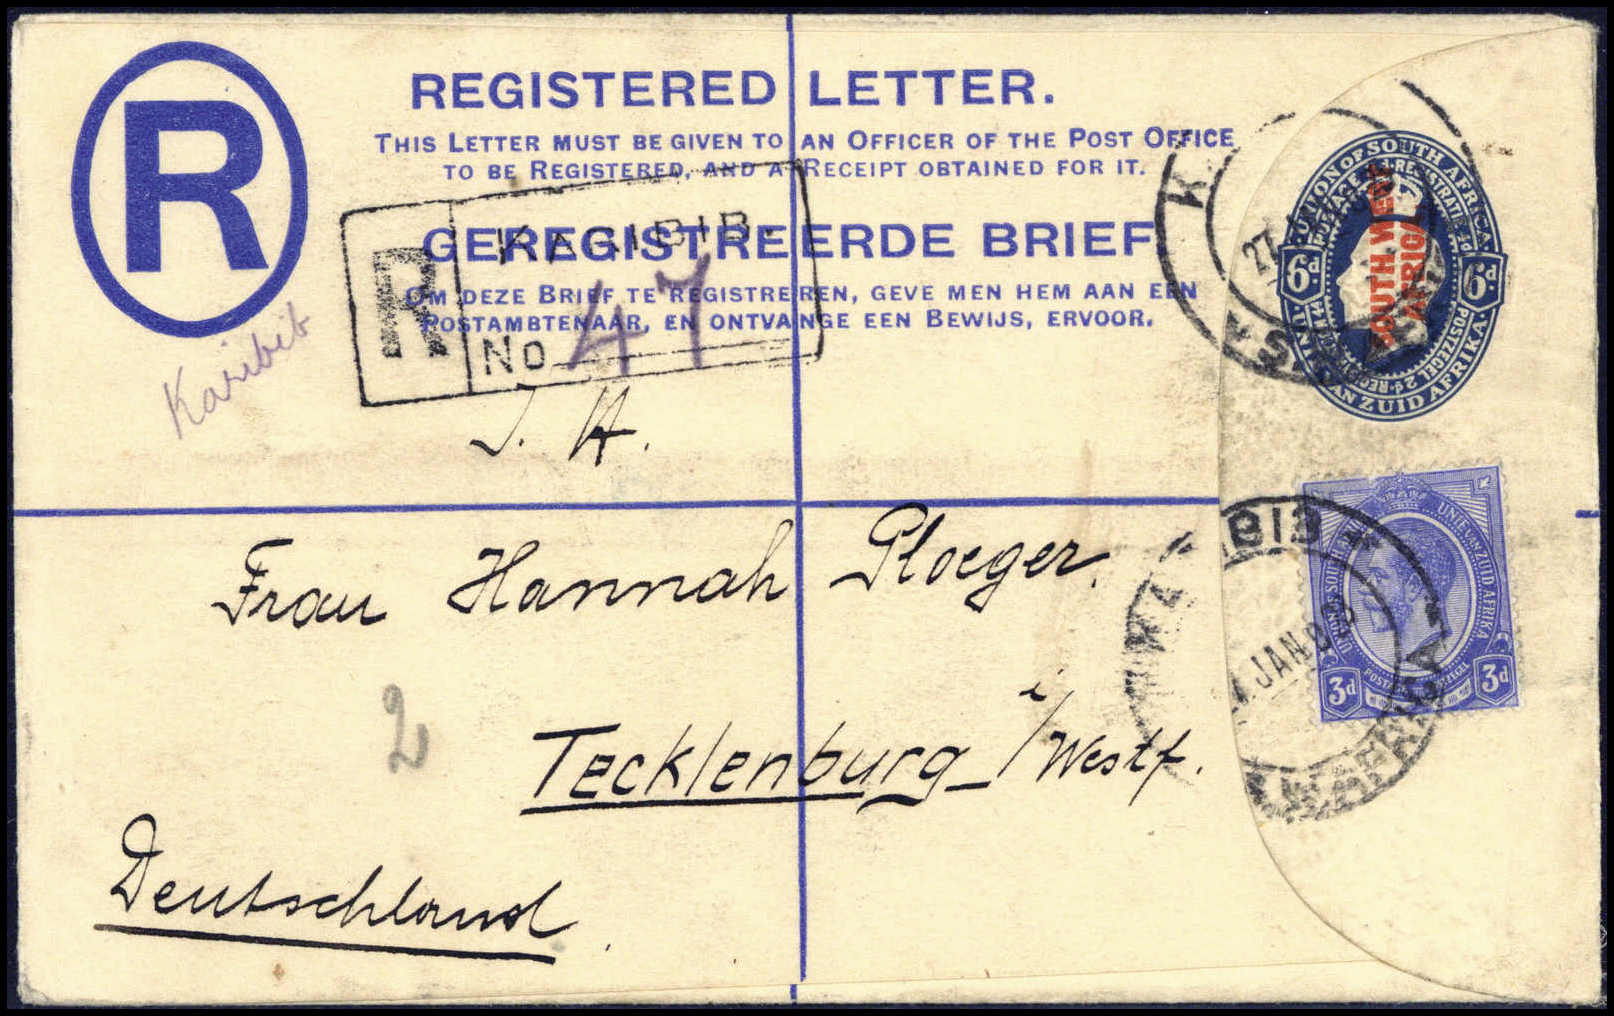 R
REGISTERED LETTER.
THIS LETTER MUST BE GIVEN TO AN OFFICER OF THE POST OFFICE
TO BE REGISTERED, AND A RECEIPT OBTAINED FOR IT.
GEREGISTREERDE BRIEF
OM DEZE BRIEF TE REGISTREREN, GEVE MEN HEM AAN EEN
POSTAMBTENAAR, EN ONTVANGE EEN BEWIJS, ERVOOR.
R
KARIBIB.
No 47
Karibib
UNION OF SOUTH AFRICA
UNIE VAN ZUID AFRIKA
6d 6d
SOUTH WEST
AFRICA
27
Frau Hannah Ploeger.
Tecklenburg i/Westf.
Deutschland.
2
UNION OF SOUTH
UNIE VAN ZUID AFRIKA
3d 3d
JAN